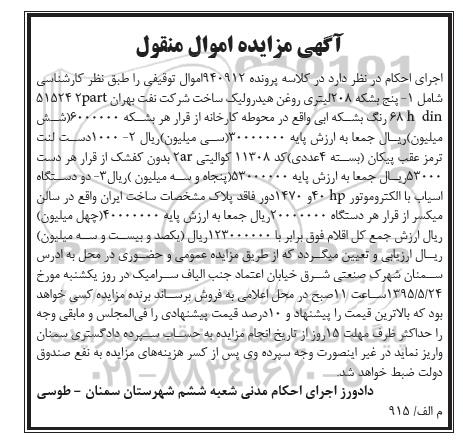 آگهی مزایده اموال منقول
اجرای احکام در نظر دارد در کلاسه پرونده ۹۴۰۹۱۲اموال توقیفی را طبق نظر کارشناسی
شامل ۱- پنج بشکه ۲۰۸لیتری روغن هیدرولیک ساخت شرکت نفت بهران ۲part ۵۱۵۲۴
۶۸ h din رنگ بشکه ابی واقع در محوطه کارخانه از قرار هر بشکه ۶۰۰۰۰۰۰(شش
میلیون)ریال جمعا به ارزش پایه ۳۰۰۰۰۰۰۰(سی میلیون)ریال ۲- ۱۰۰۰دست لنت
ترمز عقب پیکان (بسته ۴عددی)کد ۱۱۳۰۸ کوالیتی ۲ar بدون کفشک از قرار هر دست
۵۳۰۰۰ریال جمعا به ارزش پایه ۵۳۰۰۰۰۰۰(پنجاه و سه میلیون )ریال۳- دو دستگاه
اسیاب با الکتروموتور hp ۴۰و ۱۴۷۰دور فاقد پلاک مشخصات ساخت ایران واقع در سالن
میکسر از قرار هر دستگاه ۲۰۰۰۰۰۰۰ریال جمعا به ارزش پایه ۴۰۰۰۰۰۰۰(چهل میلیون)
ریال ارزش جمع کل اقلام فوق برابر با ۱۲۳۰۰۰۰۰۰ریال (یکصد و بیست و سه میلیون)
ریال ارزیابی و تعیین میگردد که از طریق مزایده عمومی و حضوری در محل به ادرس
سمنان شهرک صنعتی شرق خیابان اعتماد جنب الیاف سرامیک در روز یکشنبه مورخ
۱۳۹۵/۵/۲۴ساعت ۱۱صبح در محل اعلامی به فروش برساند برنده مزایده کسی خواهد
بود که بالاترین قیمت را پیشنهاد و ۱۰درصد قیمت پیشنهادی را فی‌المجلس و مابقی وجه
را حداکثر ظرف مهلت ۱۵روز از تاریخ انجام مزایده به حساب سپرده دادگستری سمنان
واریز نماید در غیر اینصورت وجه سپرده وی پس از کسر هزینه‌های مزایده به نفع صندوق
دولت ضبط خواهد شد.
دادورز اجرای احکام مدنی شعبه ششم شهرستان سمنان - طوسی
م الف/ ۹۱۵
۰۲۱-۸۸۳۴۹۶۷۰-۵